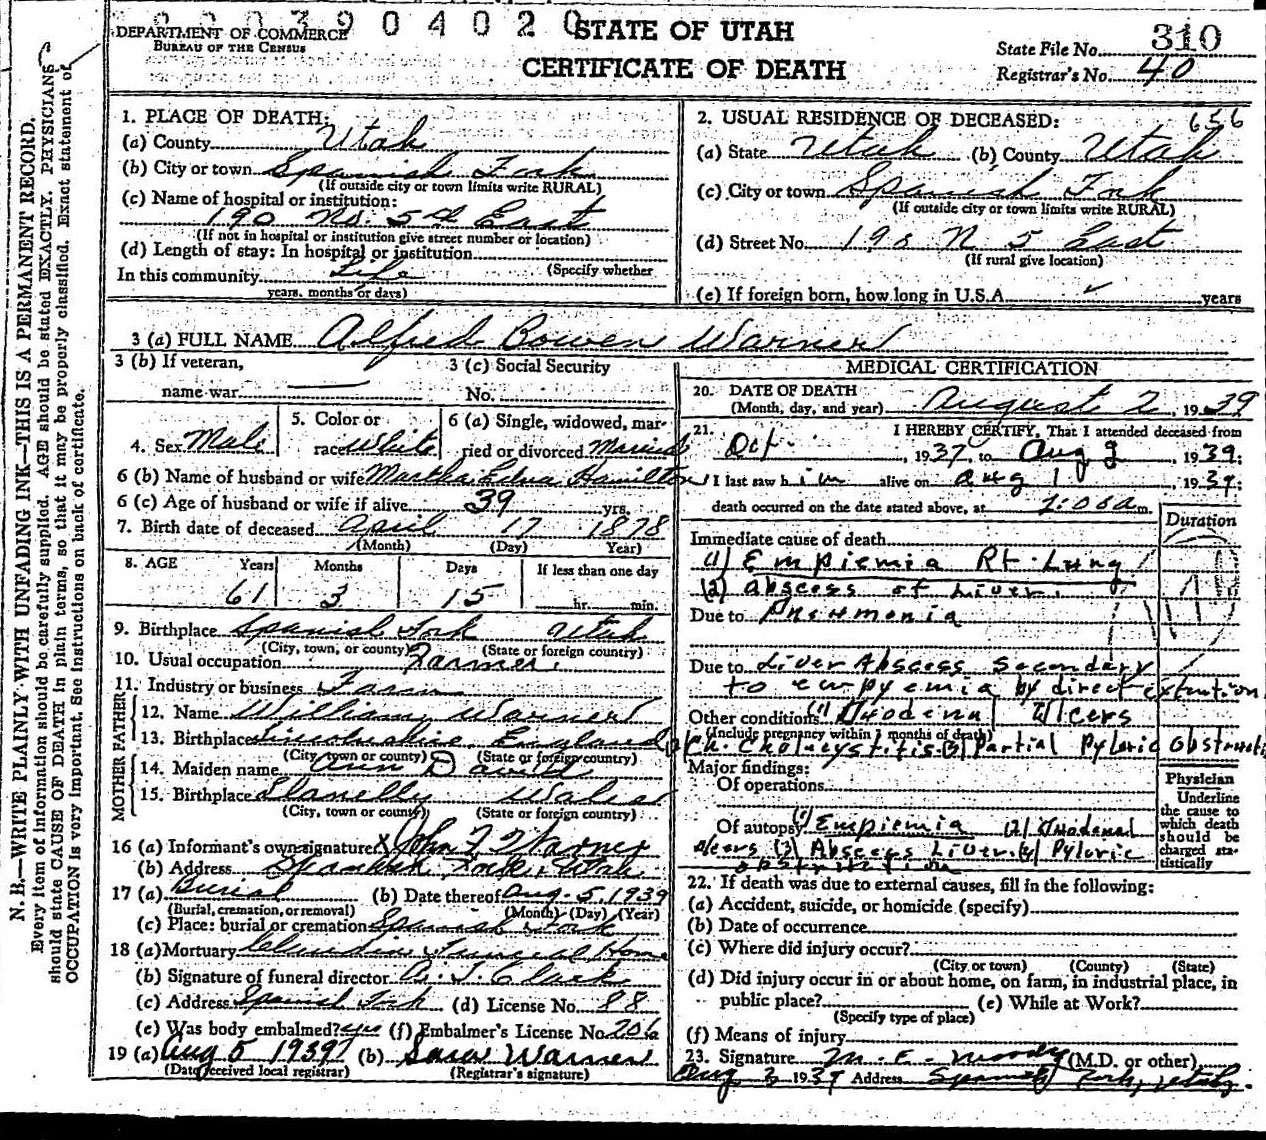 0003904020
STATE OF UTAH
CERTIFICATE OF DEATH
DEPARTMENT OF COMMERCE
BUREAU OF THE CENSUS
State File No. 310
Registrar's No. 40
N. B.—WRITE PLAINLY WITH UNFADING INK—THIS IS A PERMANENT RECORD.
Every item of information should be carefully supplied. AGE should be stated EXACTLY. PHYSICIANS
should state CAUSE OF DEATH in plain terms, so that it may be properly classified. Exact statement of
OCCUPATION is very important. See instructions on back of certificate.
1. PLACE OF DEATH:
(a) County Utah
(b) City or town Spanish Fork
(If outside city or town limits write RURAL)
(c) Name of hospital or institution:
190 No. 5th East
(If not in hospital or institution give street number or location)
(d) Length of stay: In hospital or institution
(Specify whether
In this community Life
years, months or days)
2. USUAL RESIDENCE OF DECEASED: 656
(a) State Utah (b) County Utah
(c) City or town Spanish Fork
(If outside city or town limits write RURAL)
(d) Street No. 190 N 5 East
(If rural give location)
(e) If foreign born, how long in U.S.A. years
3 (a) FULL NAME Alfred Bowen Warner
3 (b) If veteran,
name war
3 (c) Social Security
No.
4. Sex Male
5. Color or
race White
6 (a) Single, widowed, mar-
ried or divorced Married
6 (b) Name of husband or wife Martha Edna Hamilton
6 (c) Age of husband or wife if alive 39 yrs.
7. Birth date of deceased April 17 1878
(Month) (Day) Year)
8. AGE Years Months Days If less than one day
61 3 15 hr. min.
9. Birthplace Spanish Fork Utah
(City, town, or county) (State or foreign country)
10. Usual occupation Farmer.
11. Industry or business Farm
FATHER
12. Name William Warner
13. Birthplace Lincolnshire England
(City, town or county) (State or foreign country)
MOTHER
14. Maiden name Ann David
15. Birthplace Llanelly Wales
(City, town or county) (State or foreign country)
16 (a) Informant's own signature x John F Warner
(b) Address Spanish Fork, Utah
17 (a) Burial (b) Date thereof Aug. 5, 1939
(Burial, cremation, or removal) (Month) (Day) (Year)
(c) Place: burial or cremation Spanish Fork
18 (a) Mortuary Claudin Funeral Home
(b) Signature of funeral director A. J. Clark
(c) Address Spanish Fork (d) License No. 88
(e) Was body embalmed? yes (f) Embalmer's License No. 206
19 (a) Aug 5 1939 (b) Warner
(Date received local registrar) (Registrar's signature)
MEDICAL CERTIFICATION
20. DATE OF DEATH
(Month, day, and year) August 2, 1939
21. I HEREBY CERTIFY, That I attended deceased from
Oct. , 1937, to Aug 2 1939;
I last saw him alive on Aug 1 , 1939;
death occurred on the date stated above, at 1:06 a m.
Duration
Immediate cause of death
(1) Empiemia Rt. Lung
(2) Abscess of Liver.
Due to Pneumonia
Due to Liver Abscess Secondary
to empyemia by direct extention
Other conditions (1) Duodenal Ulcers
(Include pregnancy within 3 months of death)
(2) Ch. Cholacystitis (3) Partial Pyloric Obstructi
Major findings:
Of operations
Of autopsy (1) Empiemia (2) Duodenal
ulcers (3) Abscess Liver (4) Pyloric
obstruction
Physician
Underline
the cause to
which death
should be
charged sta-
tistically
22. If death was due to external causes, fill in the following:
(a) Accident, suicide, or homicide (specify)
(b) Date of occurrence
(c) Where did injury occur?
(City or town) (County) (State)
(d) Did injury occur in or about home, on farm, in industrial place, in
public place? (e) While at Work?
(Specify type of place)
(f) Means of injury
23. Signature M. E. Moody (M.D. or other)
Aug 3 1939 Address Spanish Fork, Utah.